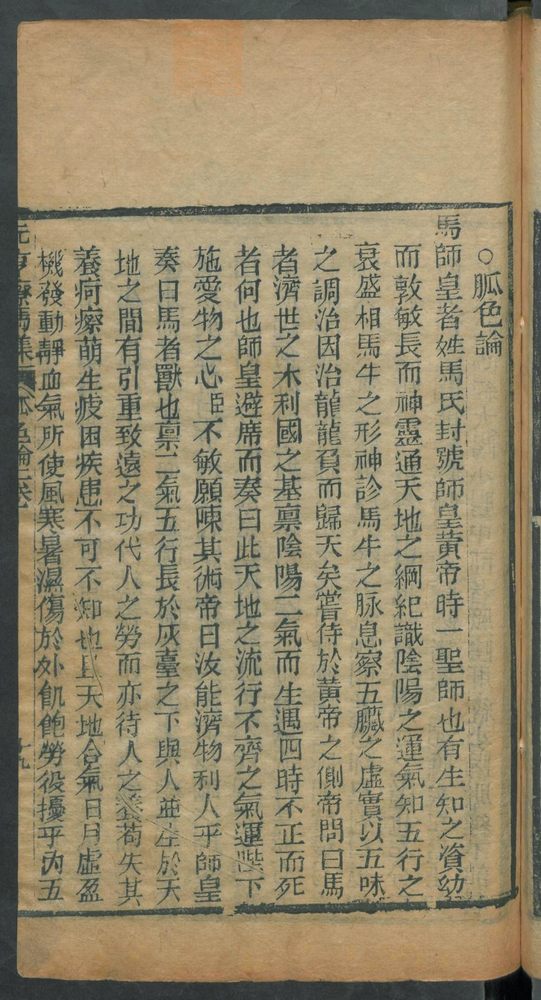 ○脈色論
馬師皇者姓馬氏封號師皇黄帝時一聖師也有生知之資幼
而敦敏長而神靈通天地之綱紀識陰陽之運氣知五行之
衰盛相馬牛之形神診馬牛之脉息察五臟之虛實以五味
之調治因治龍龍負而歸天矣嘗侍於黄帝之側帝問曰馬
者濟世之本利國之基禀陰陽二氣而生遇四時不正而死
者何也師皇避席而奏曰此天地之流行不齊之氣運陛下
施愛物之心臣不敏願陳其術帝曰汝能濟物利人乎師皇
奏曰馬者獸也禀二氣五行長於灰臺之下與人並生於天
地之間有引重致遠之功代人之勞而亦待人之養苟失其
養疴瘵萌生疲困疾患不可不知也且天地合氣日月虛盈
機發動靜血氣所使風寒暑濕傷於外飢飽勞役擾乎內五
元亨療馬集 脈色論 卷一 十九